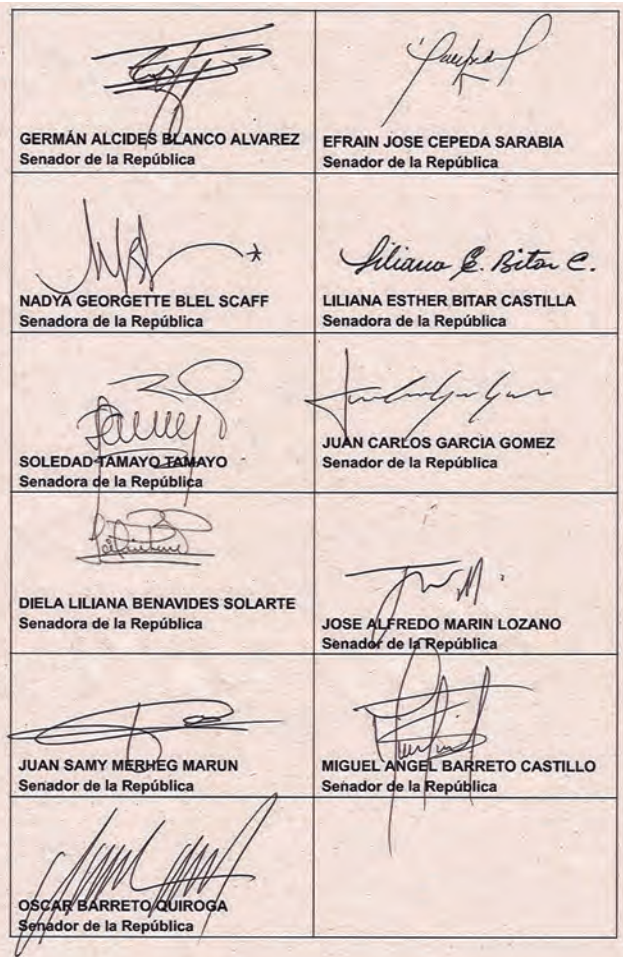 GERMÁN ALCIDES BLANCO ALVAREZ
Senador de la República
EFRAIN JOSE CEPEDA SARABIA
Senador de la República
NADYA GEORGETTE BLEL SCAFF
Senadora de la República
Liliana E. Bitar C.
LILIANA ESTHER BITAR CASTILLA
Senadora de la República
SOLEDAD TAMAYO TAMAYO
Senadora de la República
JUAN CARLOS GARCIA GOMEZ
Senador de la República
DIELA LILIANA BENAVIDES SOLARTE
Senadora de la República
JOSE ALFREDO MARIN LOZANO
Senador de la República
JUAN SAMY MERHEG MARUN
Senador de la República
MIGUEL ANGEL BARRETO CASTILLO
Senador de la República
OSCAR BARRETO QUIROGA
Senador de la República